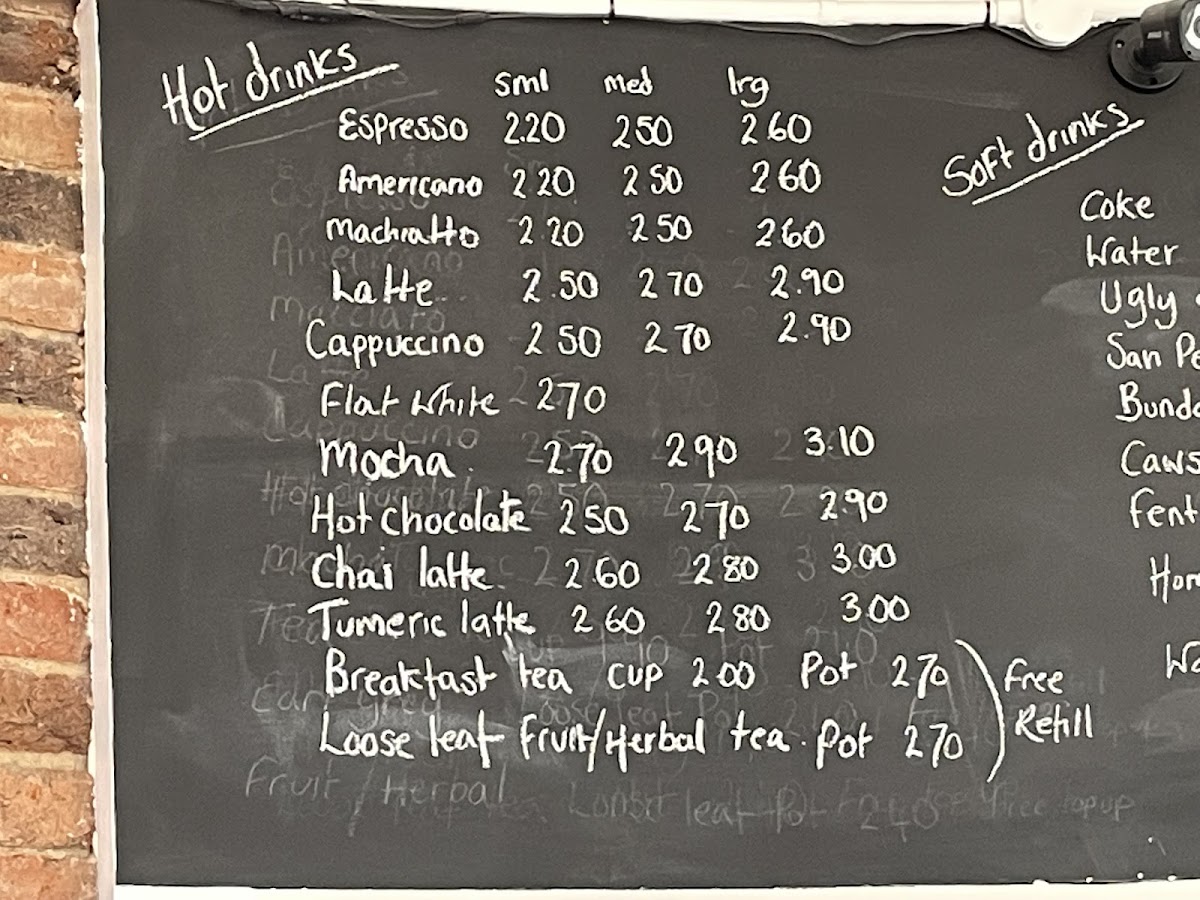 Hot drinks
sml med lrg
Espresso 2.20 2 50 2 60
Americano 2 20 2 50 2 60
Machiatto 2.20 2 50 2 60
Latte 2.50 2 70 2.90
Cappuccino 2 50 2 70 2.90
Flat White 2 70
Mocha 2.70 2 90 3.10
Hot Chocolate 2 50 2 70 2.90
Chai latte 2.60 2 80 3.00
Tumeric latte 2 60 2 80 3.00
Breakfast tea cup 2 00 Pot 2 70
Loose leaf Fruit/Herbal tea. Pot 2 70
Free
Refill
Soft drinks
Coke
Water
Ugly
San
Fruit / Herbal